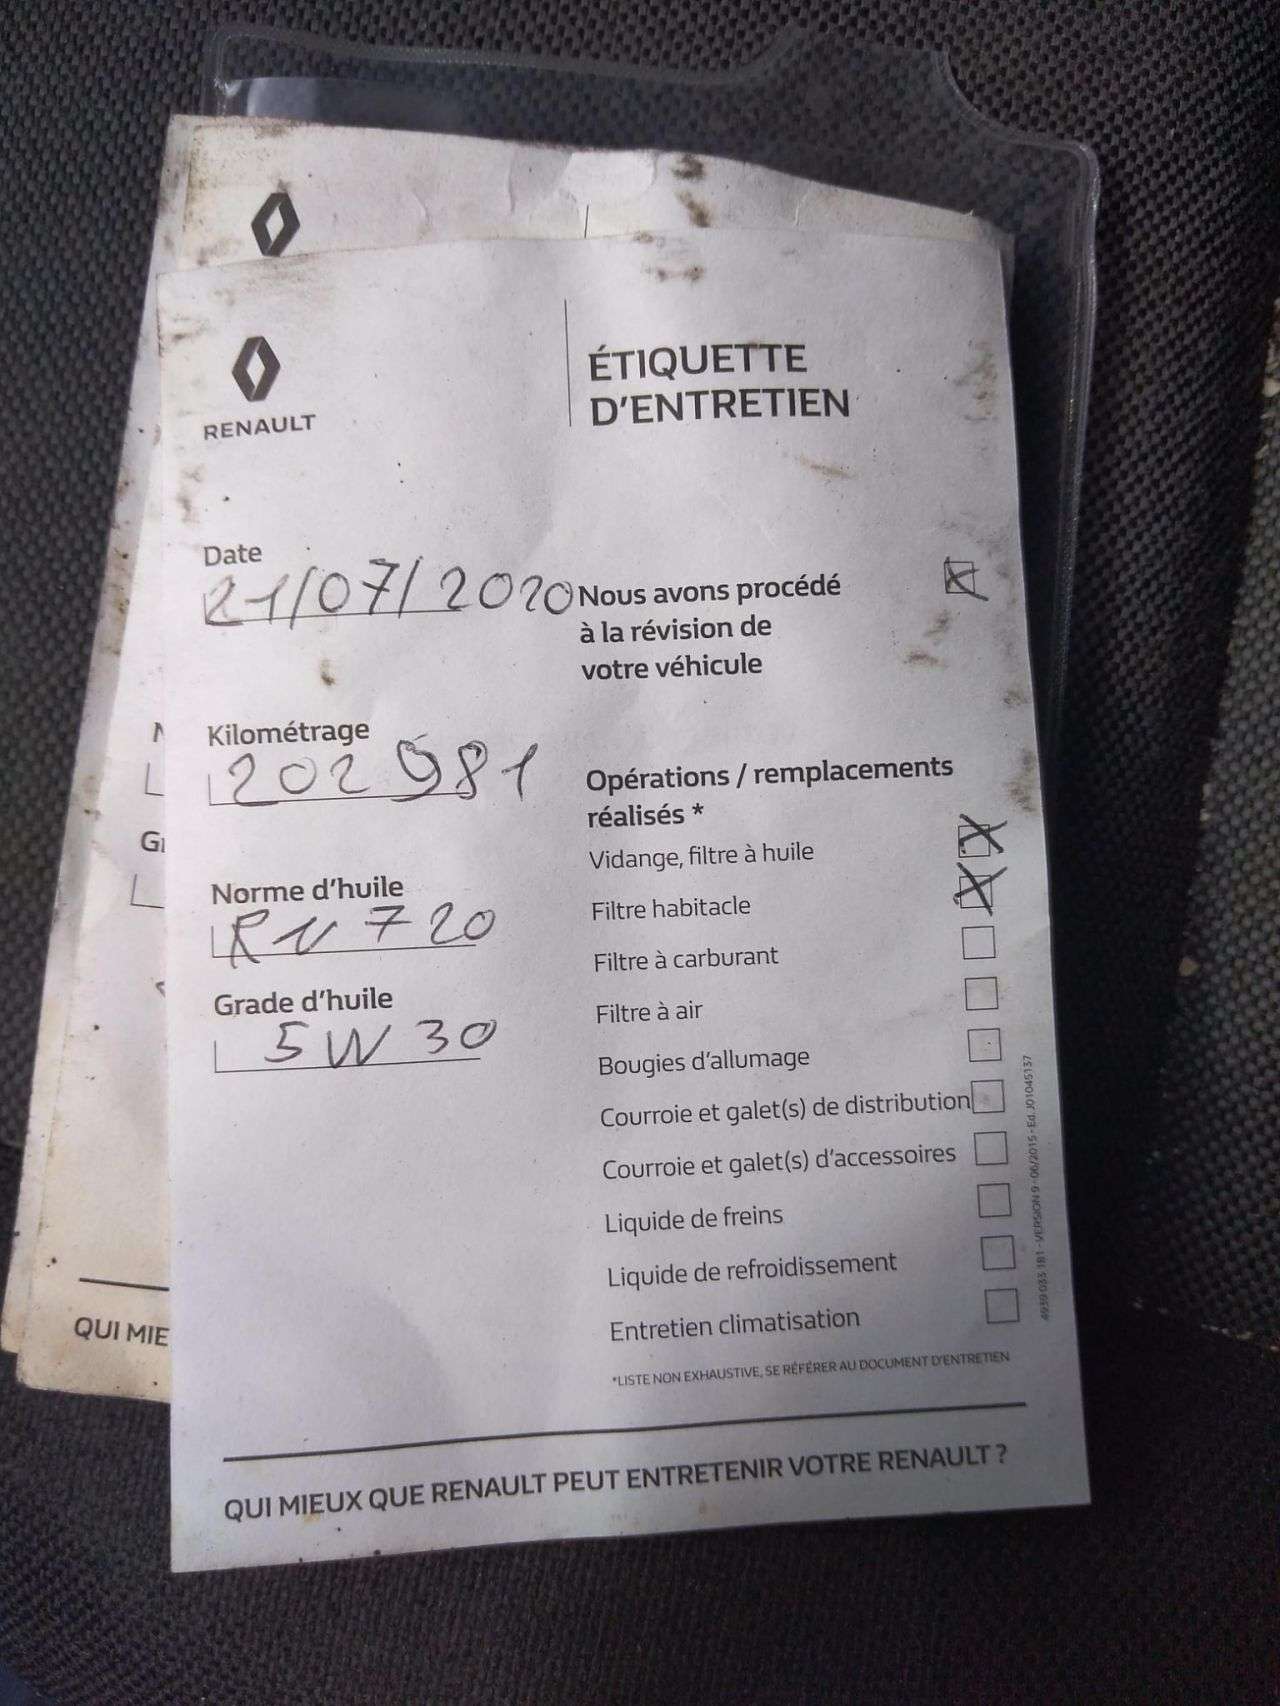 RENAULT
ÉTIQUETTE
D'ENTRETIEN
Date
21/07/2020
Nous avons procédé
à la révision de
votre véhicule
Kilométrage
202 981
Opérations / remplacements
réalisés *
Vidange, filtre à huile
Filtre habitacle
Filtre à carburant
Filtre à air
Bougies d'allumage
Courroie et galet(s) de distribution
Courroie et galet(s) d'accessoires
Liquide de freins
Liquide de refroidissement
Entretien climatisation
*LISTE NON EXHAUSTIVE, SE RÉFÉRER AU DOCUMENT D'ENTRETIEN
Norme d'huile
RN 720
Grade d'huile
5W 30
QUI MIEUX QUE RENAULT PEUT ENTRETENIR VOTRE RENAULT ?
4939 033 181 - VERSION 9 - 06/2015 - Ed. J01045137
QUI MIE